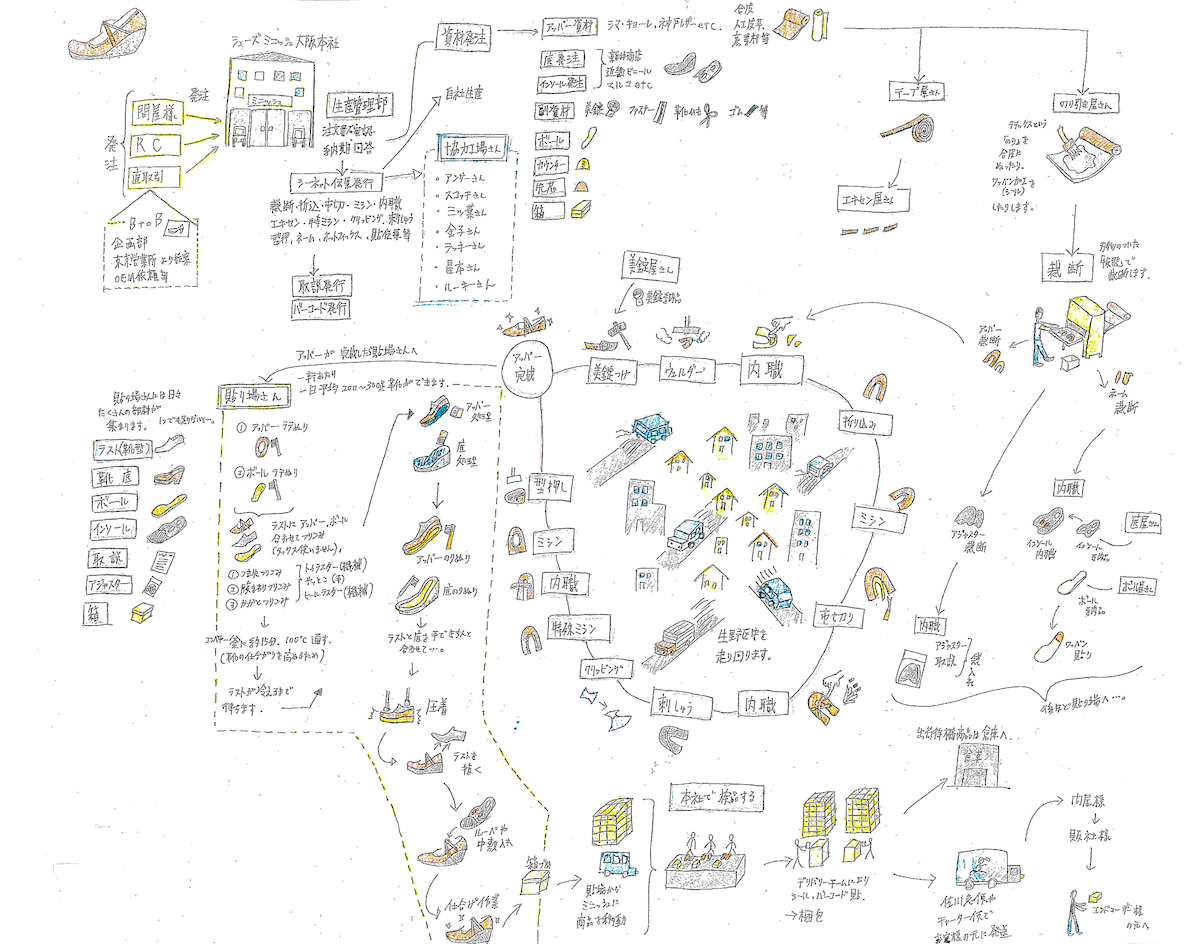 シューズ ミニッシュ 大阪本社
発注
問屋様
RC
直取引
発注
ミニッシュ
BtoB
企画部
東京営業所 より提案
OEM依頼 等
生産管理部
注文書 確認
納期 回答
シーネット伝票発行
裁断・折込・市切・ミシン・内職
エキセン・特ミシン・クリッピング、刺しゅう
型押、ネーム、ホットフィックス、貼伝票 等
取説発行
バーコード発行
資材発注
自社生産
協力工場さん
・アンダーさん
・スコッチさん
・三ッ葉さん
・金子さん
・ラッキーさん
・星本さん
・ルーキーさん
アッパー資材
シマ・キョーレ、神戸レザー etc.
底発注
インソール発注
新井商店
近畿ビニール
マルコ etc
副資材
美錠
ファスナー
靴ひも
ゴム
等
ボール
カウンター
先芯
箱
合皮
人工皮革
底資材 等
テープ屋さん
エキセン屋さん
のり引き屋さん
ラテックスという
「のり」を
合皮に
ぬったり、
ワッペン加工を
(シール)
したりします。
裁断
刃物のついた
「抜型」で
裁断します。
アッパー
裁断
ネーム
裁断
アジャスター
裁断
内職
インソール
内職
インソール
納品
底屋さん
ボール屋さん
ボール
納品
ワッペン
貼り
内職
アジャスター
取説
袋入れ
係など貼り場へ…。
美錠屋さん
美錠納品
アッパー
完成
美錠つけ
ウェルダー
内職
折り込み
ミシン
市切り
内職
刺しゅう
クリッピング
特殊ミシン
内職
ミシン
型押し
生野区中を
走り回ります。
アッパーが完成したら貼り場さんへ
一軒あたり
一日平均 200〜300足 靴ができます。
貼り場さん
貼り場さんには日々
たくさんの部材が
集まります。
ラスト(靴型)
靴底
ボール
インソール
取説
アジャスター
箱
① アッパー ラテぬり
② ボール ラテぬり
ラストに アッパー、ボール
合わせてつりこみ
(タックス使いません)。
① つま先つりこみ
② 腰まわりつりこみ
③ かかとつりこみ
トゥラスター(機械)
ヤットコ(手)
ヒールラスター(機械)
コンベアー釜に約15分、100℃通す。
(靴の仕上がりを高めるため)
ラストが冷えるまで
待ちます。
アッパー
処理
底
処理
アッパーのりぬり
底のりぬり
ラストと底を手できちんと
合わせて…。
圧着
ラストを
抜く
ルーペや
中敷入れ
仕上げ作業
箱づめ
貼場から
ミニッシュに
商品を移動
本社で検品する
デリバリーチームにより
シール、バーコード貼、
→梱包
出荷待機商品は倉庫へ。
倉庫
佐川急便や
チャーター便で
お客様の元に発送
問屋様
販社様
エンドユーザー様
の元へ